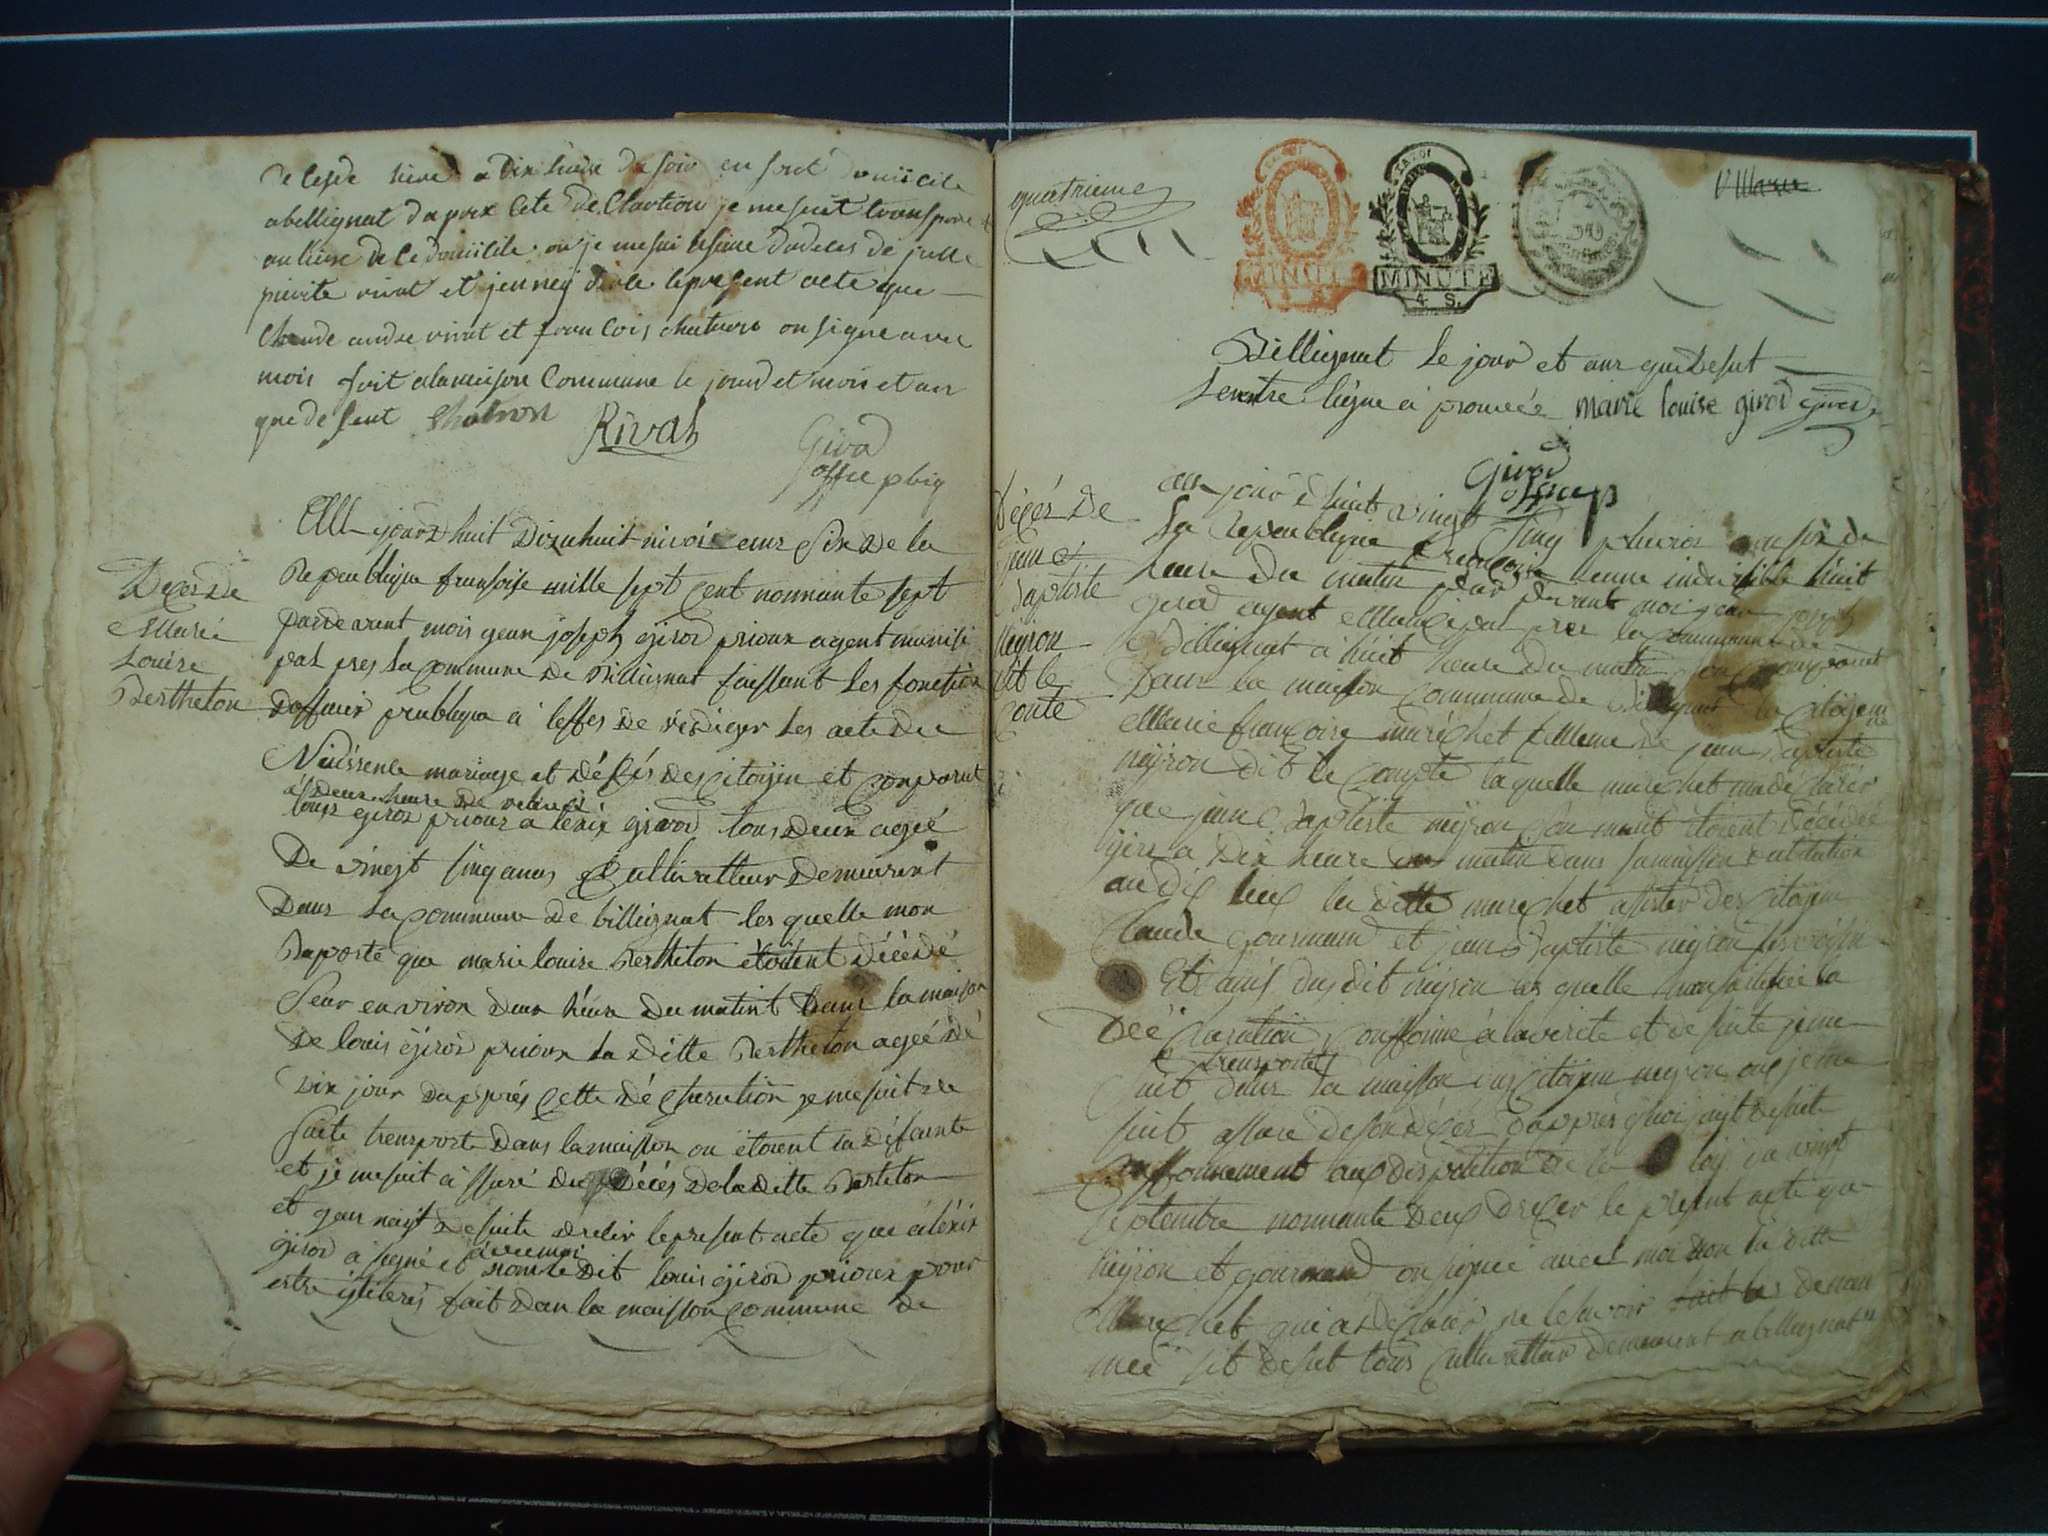 decede hiere a dix heure du soir en sont domicile
abellignat daprex cete declartion je me suit transporte
au lieux de ce domicile ou je me sui
rivat et
Claude andre rivat et francois chatron on signe avec
mois fait a la maison Commune le jourd et mois et an
que de sent chatron
Rivat
Girod
offie pbiq
Decés De
Marie
Louise
Bertheton
Aujourdhuit Dixuhuit nivos ans Six De la
Republique fransoise mille sept cent nonnante sept
pardevant mois jean joseph girod prioux agent munisi
pal pres la commune de Billiignat faissant les fonction
Doffisier publique à leffes de rédiger les acte de
Naissence mariage et décés des citoyin et comparut
à Deux heure De relevés
louis girod prioux alexix girod tous deux ageé
De vingt sinq anns Cultivatteur Demeurent
Dans la commune De billiignat les quelle mon
Raporté que marie louise Bertheton étoient décédé
Seur environ deux heure du matint dans la maison
De louis girod prioux la ditte Bertheton ageé dé
Dix jour dapprés cette déclaration je me suit de
Suite transporte Dans la maisson ou étoient la défunte
et je me suit à ssuré du décés de la ditte Bertheton
et jean nayt de suite dresér le present acte que àléxix
girod a signé et non le dit louis girod prioux pour
avec moi
estre iliterés fait dan la maisson commune de
quatrieme
MINUTE
4 S.
MINUTE
4 S.
Billiignat le jour et ans que desut
Lentre ligne à prouvée marie louise girod girod
Girod
Décés De
jean
Baptiste
Neyron
dit le
Conte
aujourdhuit vingt sinq pluvios ans six de
la Republique francoise une indivisible huit
heure du matin par devant moi jean joseph
girod agent municipal pres la commune de
Billiignat à huit heure du matin son comparut
Dans la maisson commune de Billiignat la citoyenne
Marie francoise maréchet femme de jean Baptiste
neyron dit le compte laquelle marechet ma déclarér
que jean Baptiste neyron son marit étoient décédé
hyere a dix heure du matin dans sa maisson dabitation
au dit lieux la ditte marechet assistér des citoyin
Claude gourmand et jean Baptiste neyron ses voisin
Et amis du dit neyron les quelle
Déclaration conforme à la vérite et de suite je me
transporte
suit dans la maisson du citoyin neyron ou je me
suit assure de son décés dapprés quoi jayt de suite
Conformement aux disposition de la loy du vingt
septembre nonnante deux dresér le present acte que
neyron et gourmand on signée avec moi non la ditte
Marechet qui a déclarér ne le savoir fait les denom
meé sit desut tous cultivatteur demeurent a billiignat